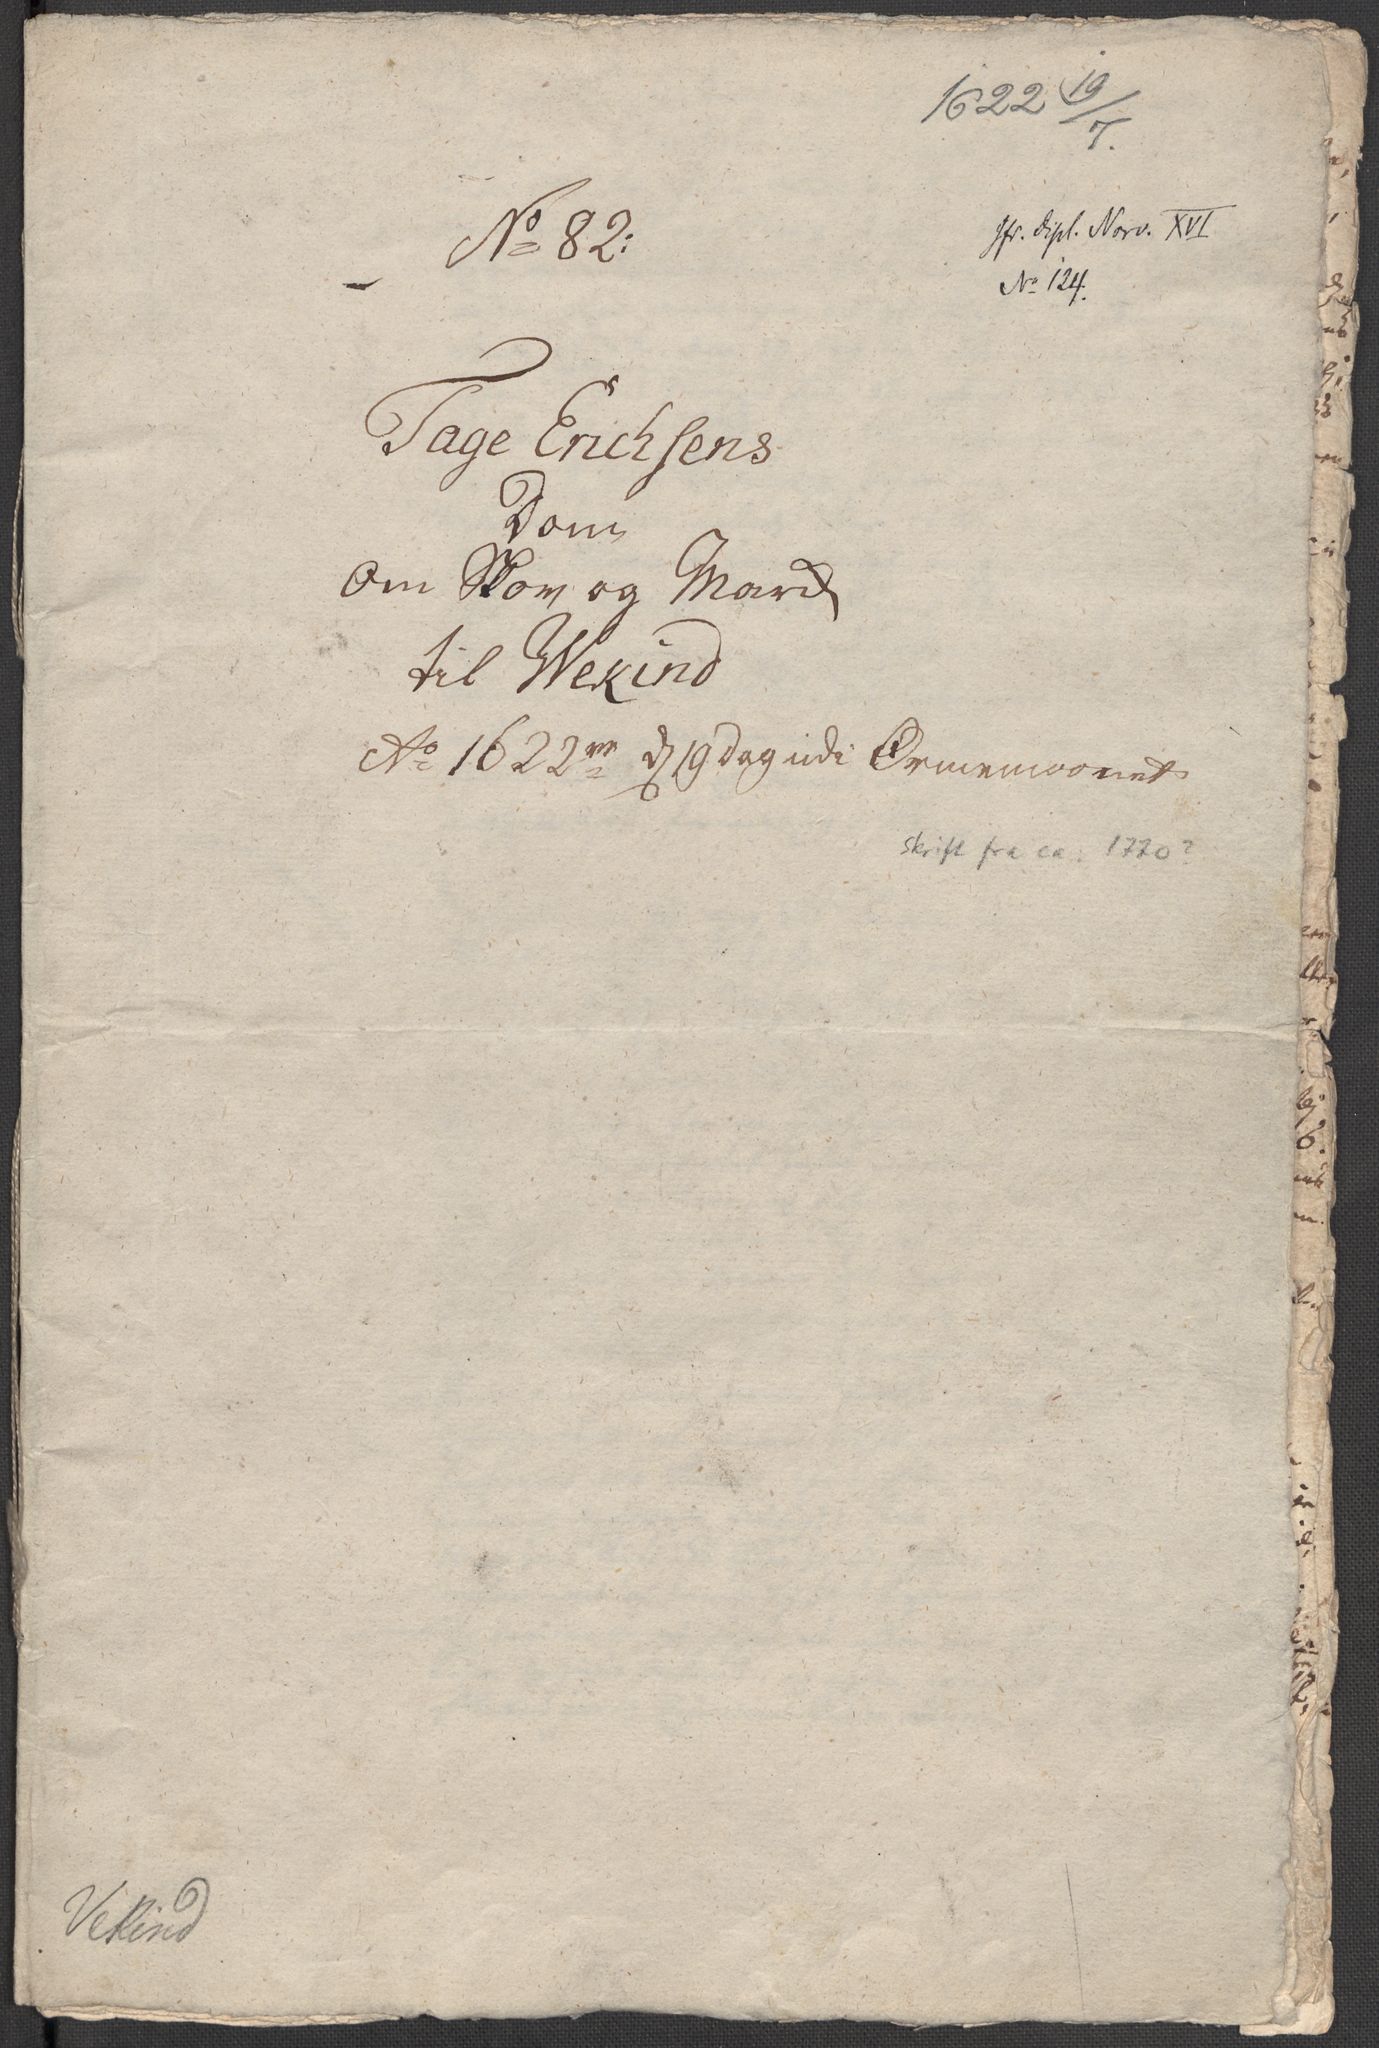 1622 19/7.
No 82:
Jfr. Dipl. Norv. XVI
No 124.
Tage Erichsens
Dom
om Skov og Marck
til Wekind
Ao 1622 d 19 dag udi Ormemoanet
skrift fra ca. 1770?
Vekind